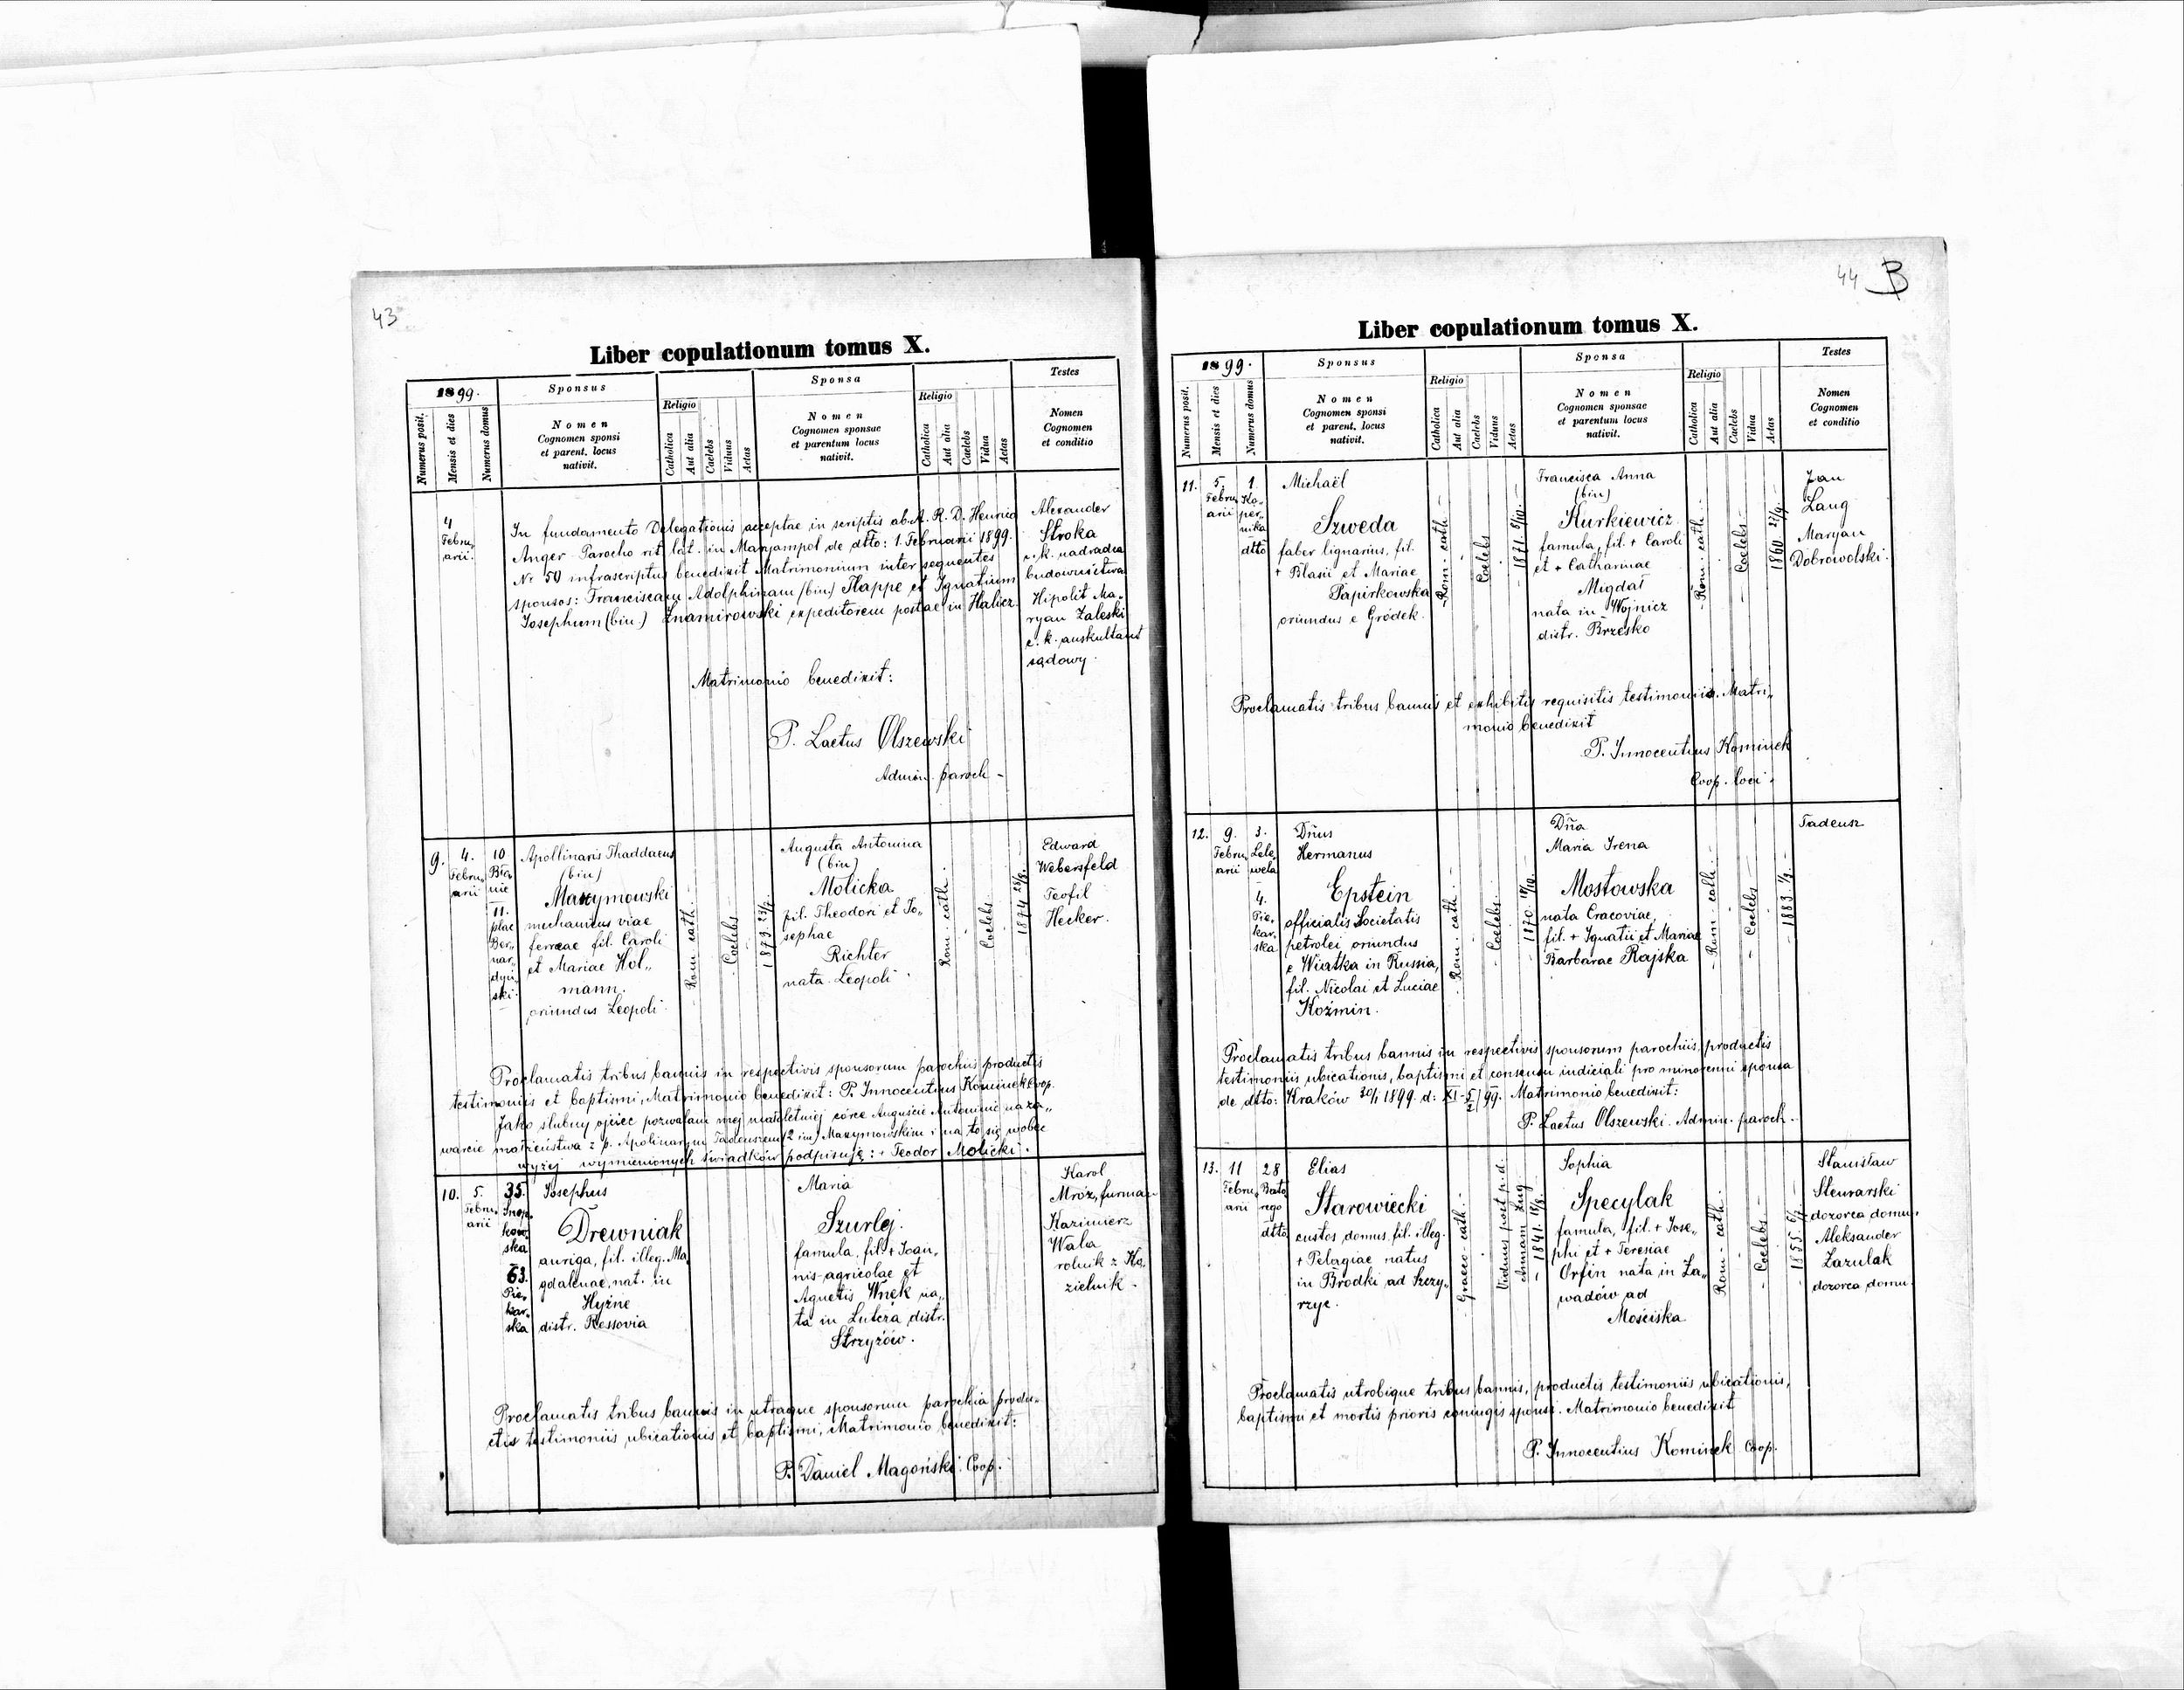 43
Liber copulationum tomus X.
1899.
Sponsus
Sponsa
Testes
Numerus posit.
Mensis et dies
Numerus domus
Nomen
Cognomen sponsi
et parent. locus
nativit.
Religio
Catholica
Aut alia
Caelebs
Viduus
Aetas
Nomen
Cognomen sponsae
et parentum locus
nativit.
Religio
Catholica
Aut alia
Caelebs
Vidua
Aetas
Nomen
Cognomen
et conditio
4
Febru„
arii.
In fundamento Delegationis acceptae in scriptis ab A. R. D. Henrico
Anger Parocho rit. lat. in Maryampol de dtto: 1. Februarii 1899.
Nr 50 infrascriptus benedixit Matrimonium inter sequentes
sponsos: Franciscam Adolphinam (bin) Happe et Ignatium
Josephum (bin.) Znamirowski expeditorem postae in Halicz.
Matrimonio benedixit:
P. Laetus Olszewski
Admin. paroch -
Alexander
Stroka
c. k. nadradca
budownictwa
Hipolit Ma„
ryan Zaleski
c. k. auskultant
sądowy.
9.
4.
Febru„
arii
10
Bło„
nie
11.
plac
Ber„
nar„
dyń„
ski.
Apollinaris Thaddaeus
(bin)
Maxymowski
mechanicus viae
ferreae fil. Caroli
et Mariae Hol„
mann.
oriundus Leopoli.
Rom. cath.
Coelebs
1873 23/7.
Augusta Antonina
(bin)
Molicka
fil. Theodori et Jo„
sephae
Richter
nata Leopoli.
Rom. cath.
Coelebs
1874 28/8.
Edward
Webersfeld
Teofil
Hecker.
Proclamatis tribus bannis in respectivis sponsorum parochiis productis
testimoniis et baptismi, Matrimonio benedixit: P. Innocentius Kominek Coop.
Jako ślubny ojciec pozwalam mej małoletniej córce Auguście Antoninie na za„
warcie małżeństwa z p. Apolinarym Tadeuszem (2 im) Maxymowskim i na to się wobec
wyżej wymienionych świadków podpisuję: + Teodor Molicki.
10.
5.
Febru„
arii
35.
Snop„
kow„
ska
63.
Pie„
kar„
ska
Josephus
Drewniak
auriga, fil. illeg. Ma„
gdalenae, nat. in
Hyżne
distr. Ressovia
Maria
Szurlej.
famula, fil. + Joan„
nis agricolae et
Agnetis Wnęk na„
ta in Lutcza distr.
Strzyżów.
Karol
Mróz, furman
Kazimierz
Wala
rolnik z Ko„
zielnik.
Proclamatis tribus bannis in utraque sponsorum parochia produ„
ctis testimoniis ubicationis et baptismi, Matrimonio benedixit:
P. Daniel Magoński. Coop.
44 B
Liber copulationum tomus X.
1899.
Sponsus
Sponsa
Testes
Numerus posit.
Mensis et dies
Numerus domus
Nomen
Cognomen sponsi
et parent. locus
nativit.
Religio
Catholica
Aut alia
Caelebs
Viduus
Aetas
Nomen
Cognomen sponsae
et parentum locus
nativit.
Religio
Catholica
Aut alia
Caelebs
Vidua
Aetas
Nomen
Cognomen
et conditio
11.
5.
Febru„
arii
1.
Ko„
per„
nika
dtto
Michaël
Szweda
faber lignarius, fil.
+ Blasii et Mariae
Papirkowska
oriundus e Gródek.
Rom. cath.
Coelebs
Francisca Anna
(bin)
Kurkiewicz
famula, fil. + Caroli
et + Catharinae
Migdał
nata in Wojnicz
distr. Brzesko
Rom. cath.
Coelebs
1860 27/9.
Jan
Lang
Maryan
Dobrowolski.
Proclamatis tribus bannis et exhibitis requisitis testimoniis. Matri„
monio benedixit
P. Innocentius Kominek
Coop. loci.
12.
9.
Febru„
arii
3.
Lele„
wela
4.
Pie„
kar„
ska
Dñus
Hermanus
Epstein
officialis Societatis
petrolei oriundus
e Wiatka in Russia,
fil. Nicolai et Luciae
Koźmin.
Rom. cath.
Coelebs.
Dña
Maria Irena
Mostowska
nata Cracoviae,
fil. + Ignatii et Mariae
Barbarae Rajska
Rom. cath.
Coelebs
Tadeusz
Proclamatis tribus bannis in respectivis sponsorum parochiis, productis
testimoniis ubicationis, baptismi et consensu iudiciali pro minorenni sponsa
de dtto: Kraków 30/1 1899. d: XI-5/2/99. Matrimonio benedixit:
P. Laetus Olszewski. Admin. paroch.
13.
11
Febru„
arii
28
Bato„
rego
dtto
Elias
Starowiecki
custos domus, fil. illeg.
+ Pelagiae natus
in Brodki ad Szczy„
rzyc.
Graeco-cath.
Viduus post p. d.
Annam Zug
1841. 18/8.
Sophia
Specylak
famula, fil. + Jose„
phi et + Teresiae
Orfin nata in Za„
wadów ad
Mościska
Rom. cath.
Coelebs
Stanisław
Stewarski
dozorca domu,
Aleksander
Łazulak
dozorca domu.
Proclamatis utrobique tribus bannis, productis testimoniis ubicationis,
baptismi et mortis prioris coniugis sponsi. Matrimonio benedixit
P. Innocentius Kominek Coop.